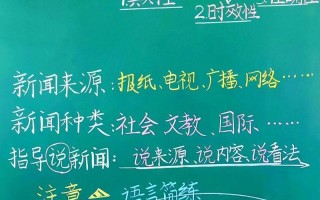 2时效性
新闻来源：报纸、电视、广播、网络……
新闻种类：社会、文教、国际……
指导说新闻：说来源、说内容、说看法
注意 语言简练